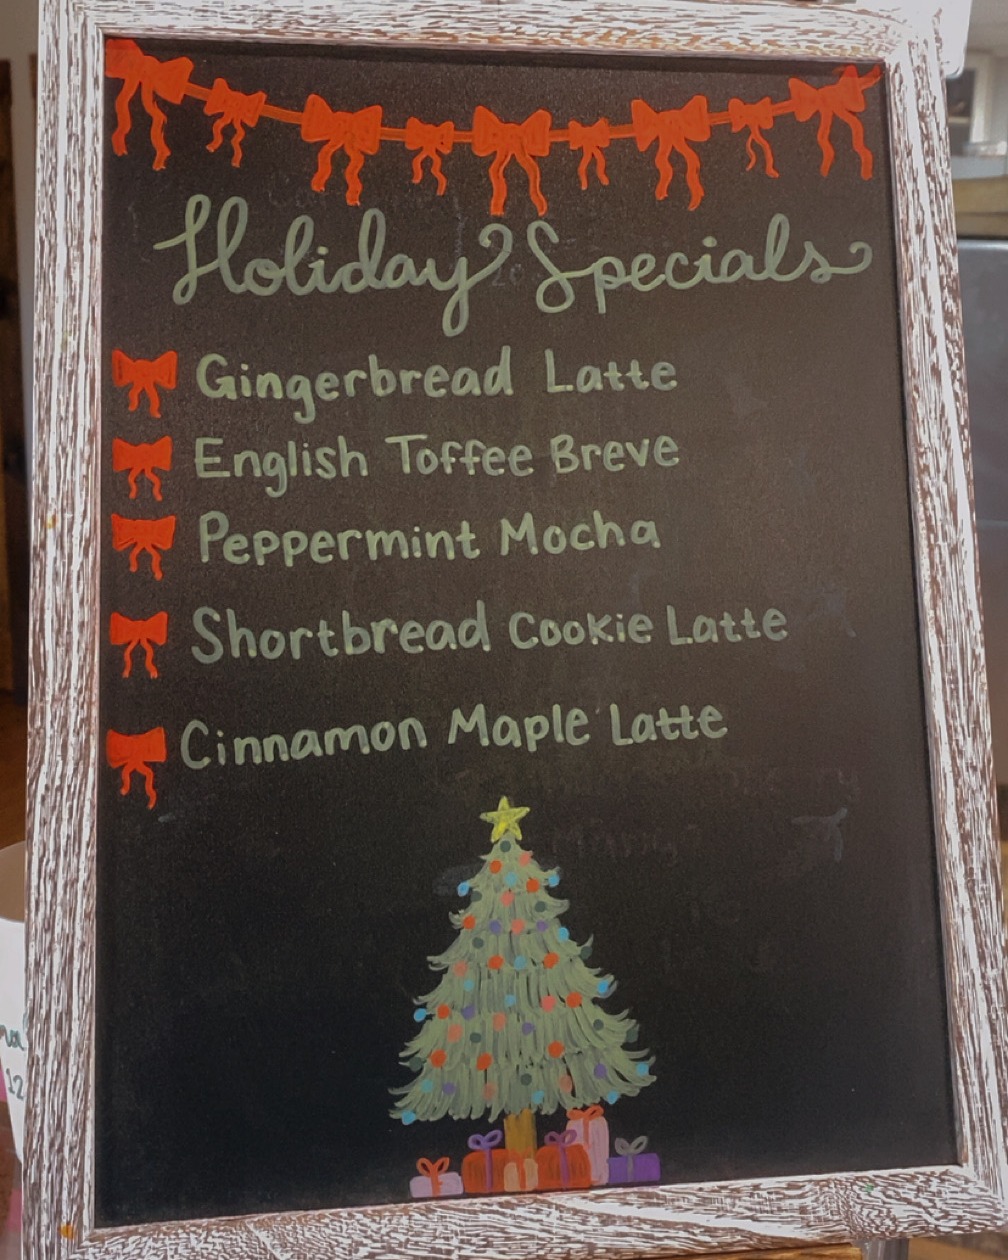 Holiday Specials
Gingerbread Latte
English Toffee Breve
Peppermint Mocha
Shortbread Cookie Latte
Cinnamon Maple Latte
12